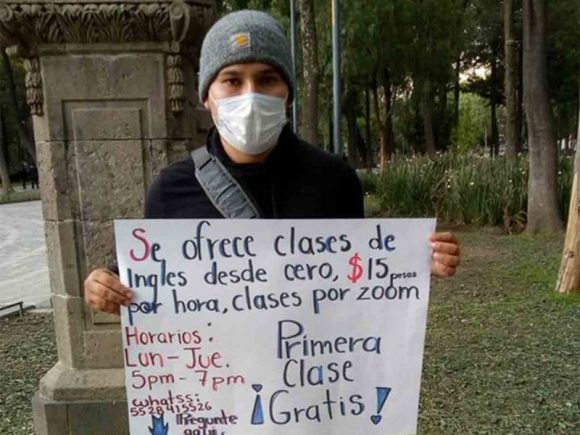 Se ofrece clases de
Ingles desde cero, $15 pesos
por hora, clases por zoom
Horarios:
Lun-Jue.
5pm-7pm
whatss:
5528415526
Pregunte
aqui
Primera
Clase
¡Gratis!